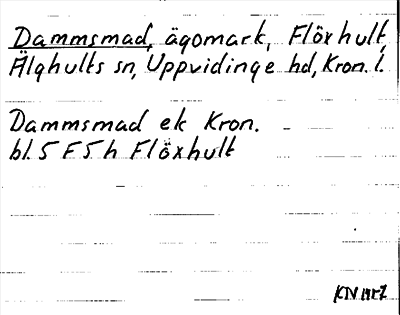 Dammsmad, ägomark, Flöxhult,
Älghults sn, Uppvidinge hd, Kron. l.
Dammsmad ek Kron.
bl. 5 F 5 h Flöxhult